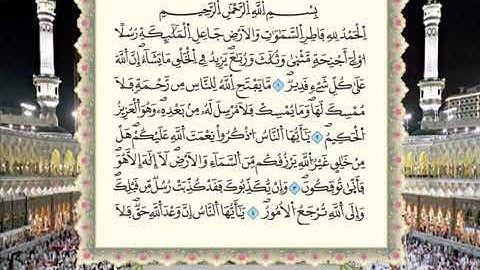 بِسْمِ ٱللَّهِ ٱلرَّحْمَٰنِ ٱلرَّحِيمِ
ٱلْحَمْدُ لِلَّهِ فَاطِرِ ٱلسَّمَٰوَٰتِ وَٱلْأَرْضِ جَاعِلِ ٱلْمَلَٰٓئِكَةِ رُسُلًا
أُو۟لِىٓ أَجْنِحَةٍ مَّثْنَىٰ وَثُلَٰثَ وَرُبَٰعَ يَزِيدُ فِى ٱلْخَلْقِ مَا يَشَآءُ إِنَّ ٱللَّهَ
عَلَىٰ كُلِّ شَىْءٍ قَدِيرٌ ١ مَّا يَفْتَحِ ٱللَّهُ لِلنَّاسِ مِن رَّحْمَةٍ فَلَا
مُمْسِكَ لَهَا وَمَا يُمْسِكْ فَلَا مُرْسِلَ لَهُۥ مِنۢ بَعْدِهِۦ وَهُوَ ٱلْعَزِيزُ
ٱلْحَكِيمُ ٢ يَٰٓأَيُّهَا ٱلنَّاسُ ٱذْكُرُوا۟ نِعْمَتَ ٱللَّهِ عَلَيْكُمْ هَلْ
مِنْ خَٰلِقٍ غَيْرُ ٱللَّهِ يَرْزُقُكُم مِّنَ ٱلسَّمَآءِ وَٱلْأَرْضِ لَآ إِلَٰهَ إِلَّا هُوَ
فَأَنَّىٰ تُؤْفَكُونَ ٣ وَإِن يُكَذِّبُوكَ فَقَدْ كُذِّبَتْ رُسُلٌ مِّن قَبْلِكَ
وَإِلَى ٱللَّهِ تُرْجَعُ ٱلْأُمُورُ ٤ يَٰٓأَيُّهَا ٱلنَّاسُ إِنَّ وَعْدَ ٱللَّهِ حَقٌّ فَلَا